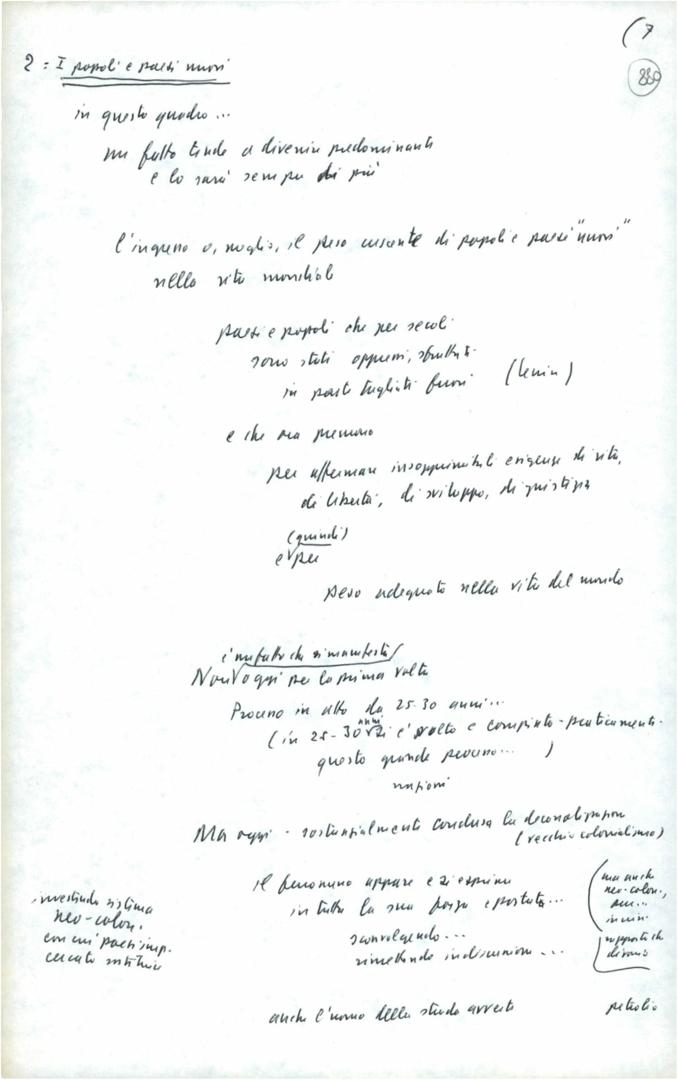 (7
880
2 = I popoli e paesi nuovi
in questo quadro...
un fatto tende a divenire predominante
e lo sarà sempre di più
l'ingresso o, meglio, il peso crescente di popoli e paesi "nuovi"
nella vita mondiale
paesi e popoli che per secoli
sono stati oppressi, sfruttati
in parte tagliati fuori (Lenin)
e che ora premono
per affermare insopprimibili esigenze di vita,
di libertà, di sviluppo, di giustizia
(quindi)
e per
peso adeguato nella vita del mondo
è un fatto che si manifesta
Non oggi per la prima volta
Processo in atto da 25-30 anni...
(in 25-30 anni si è svolto e compiuto - praticamente -
questo grande processo... )
nazioni
Ma oggi - sostanzialmente conclusa la decolonizzazione
(vecchio colonialismo)
il fenomeno appare e si esprime
in tutta la sua forza e portata...
sconvolgendo...
rimettendo in discussione...
(ma anche
neo-colon.,
rapporti che
investendo sistema
neo-colon.
con cui paesi imp.
cercato sostituire
anche l'uomo della strada avverte
petrolio